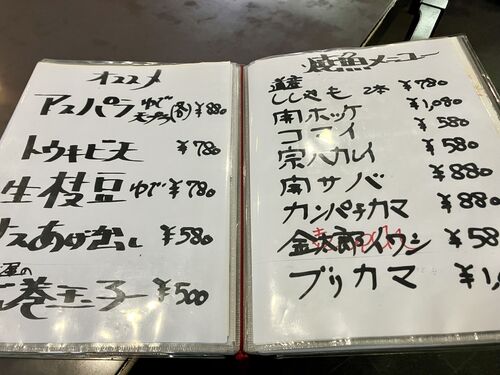 オススメ
アスパラ ゆで 天プラ(各)¥880
トウキビ天 ¥780
生枝豆 ゆで ¥780
ナスあげ出し ¥580
の
巻玉子 ¥500
焼魚メニュー
道産
ししゃも 2本 ¥780
開ホッケ ¥1,080
コマイ ¥580
宗八カレイ ¥580
開サバ ¥880
カンパチカマ ¥880
金太郎イワシ ¥58
ブリカマ ¥1,